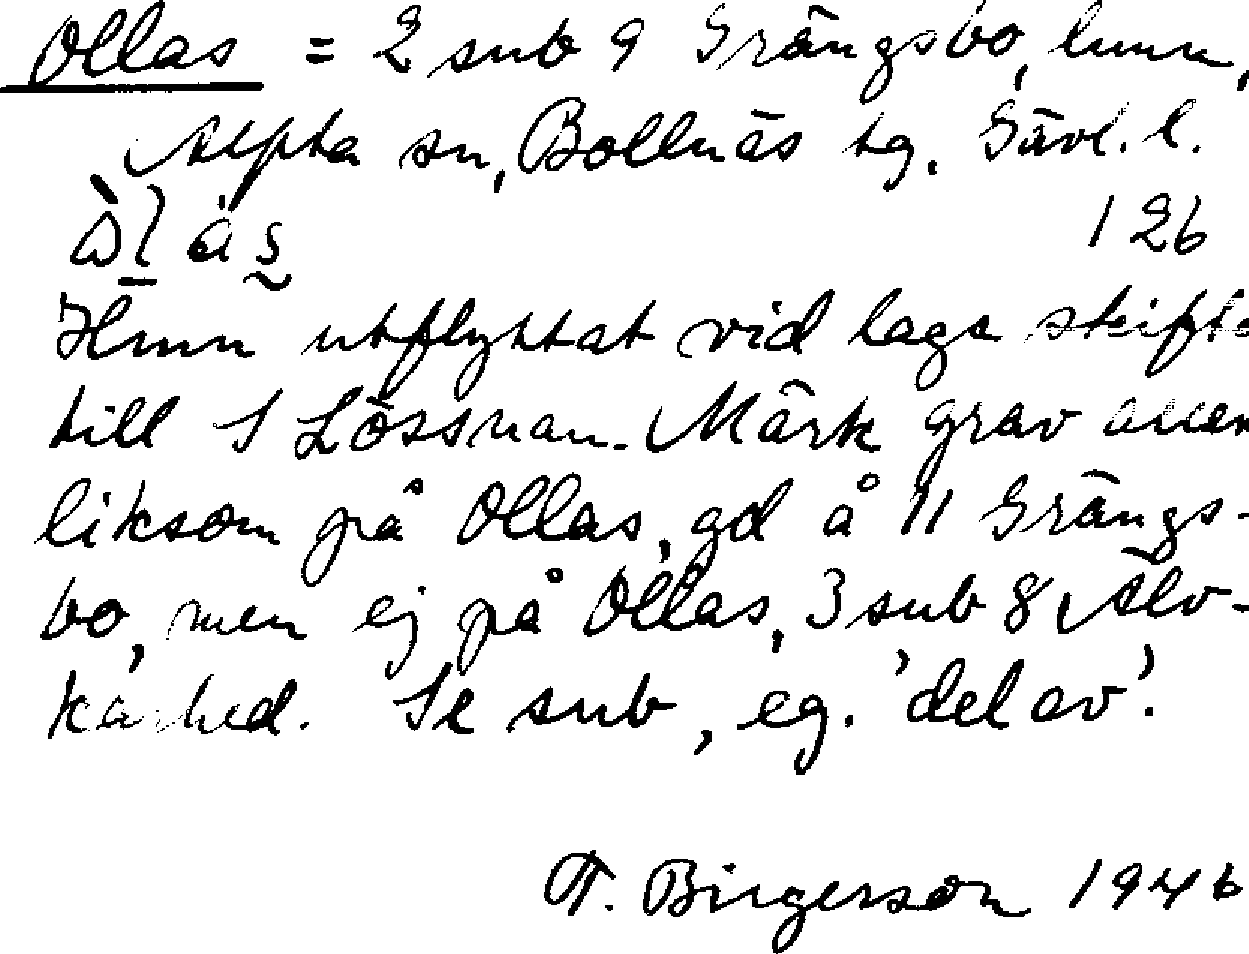 Ollas = 2 sub 9 Grängsbo, hmn,
Alfta sn, Bollnäs tg. Gävl. l.
126
Hmn utflyttat vid laga skifte
till S Lössnan. Märk grav accen
liksom på Ollas, gd å 11 Grängs-
bo, men ej på Ollas, 3 sub 8 Älv-
karhed. Se sub, eg. 'del av'.
T. Birgerson 1946